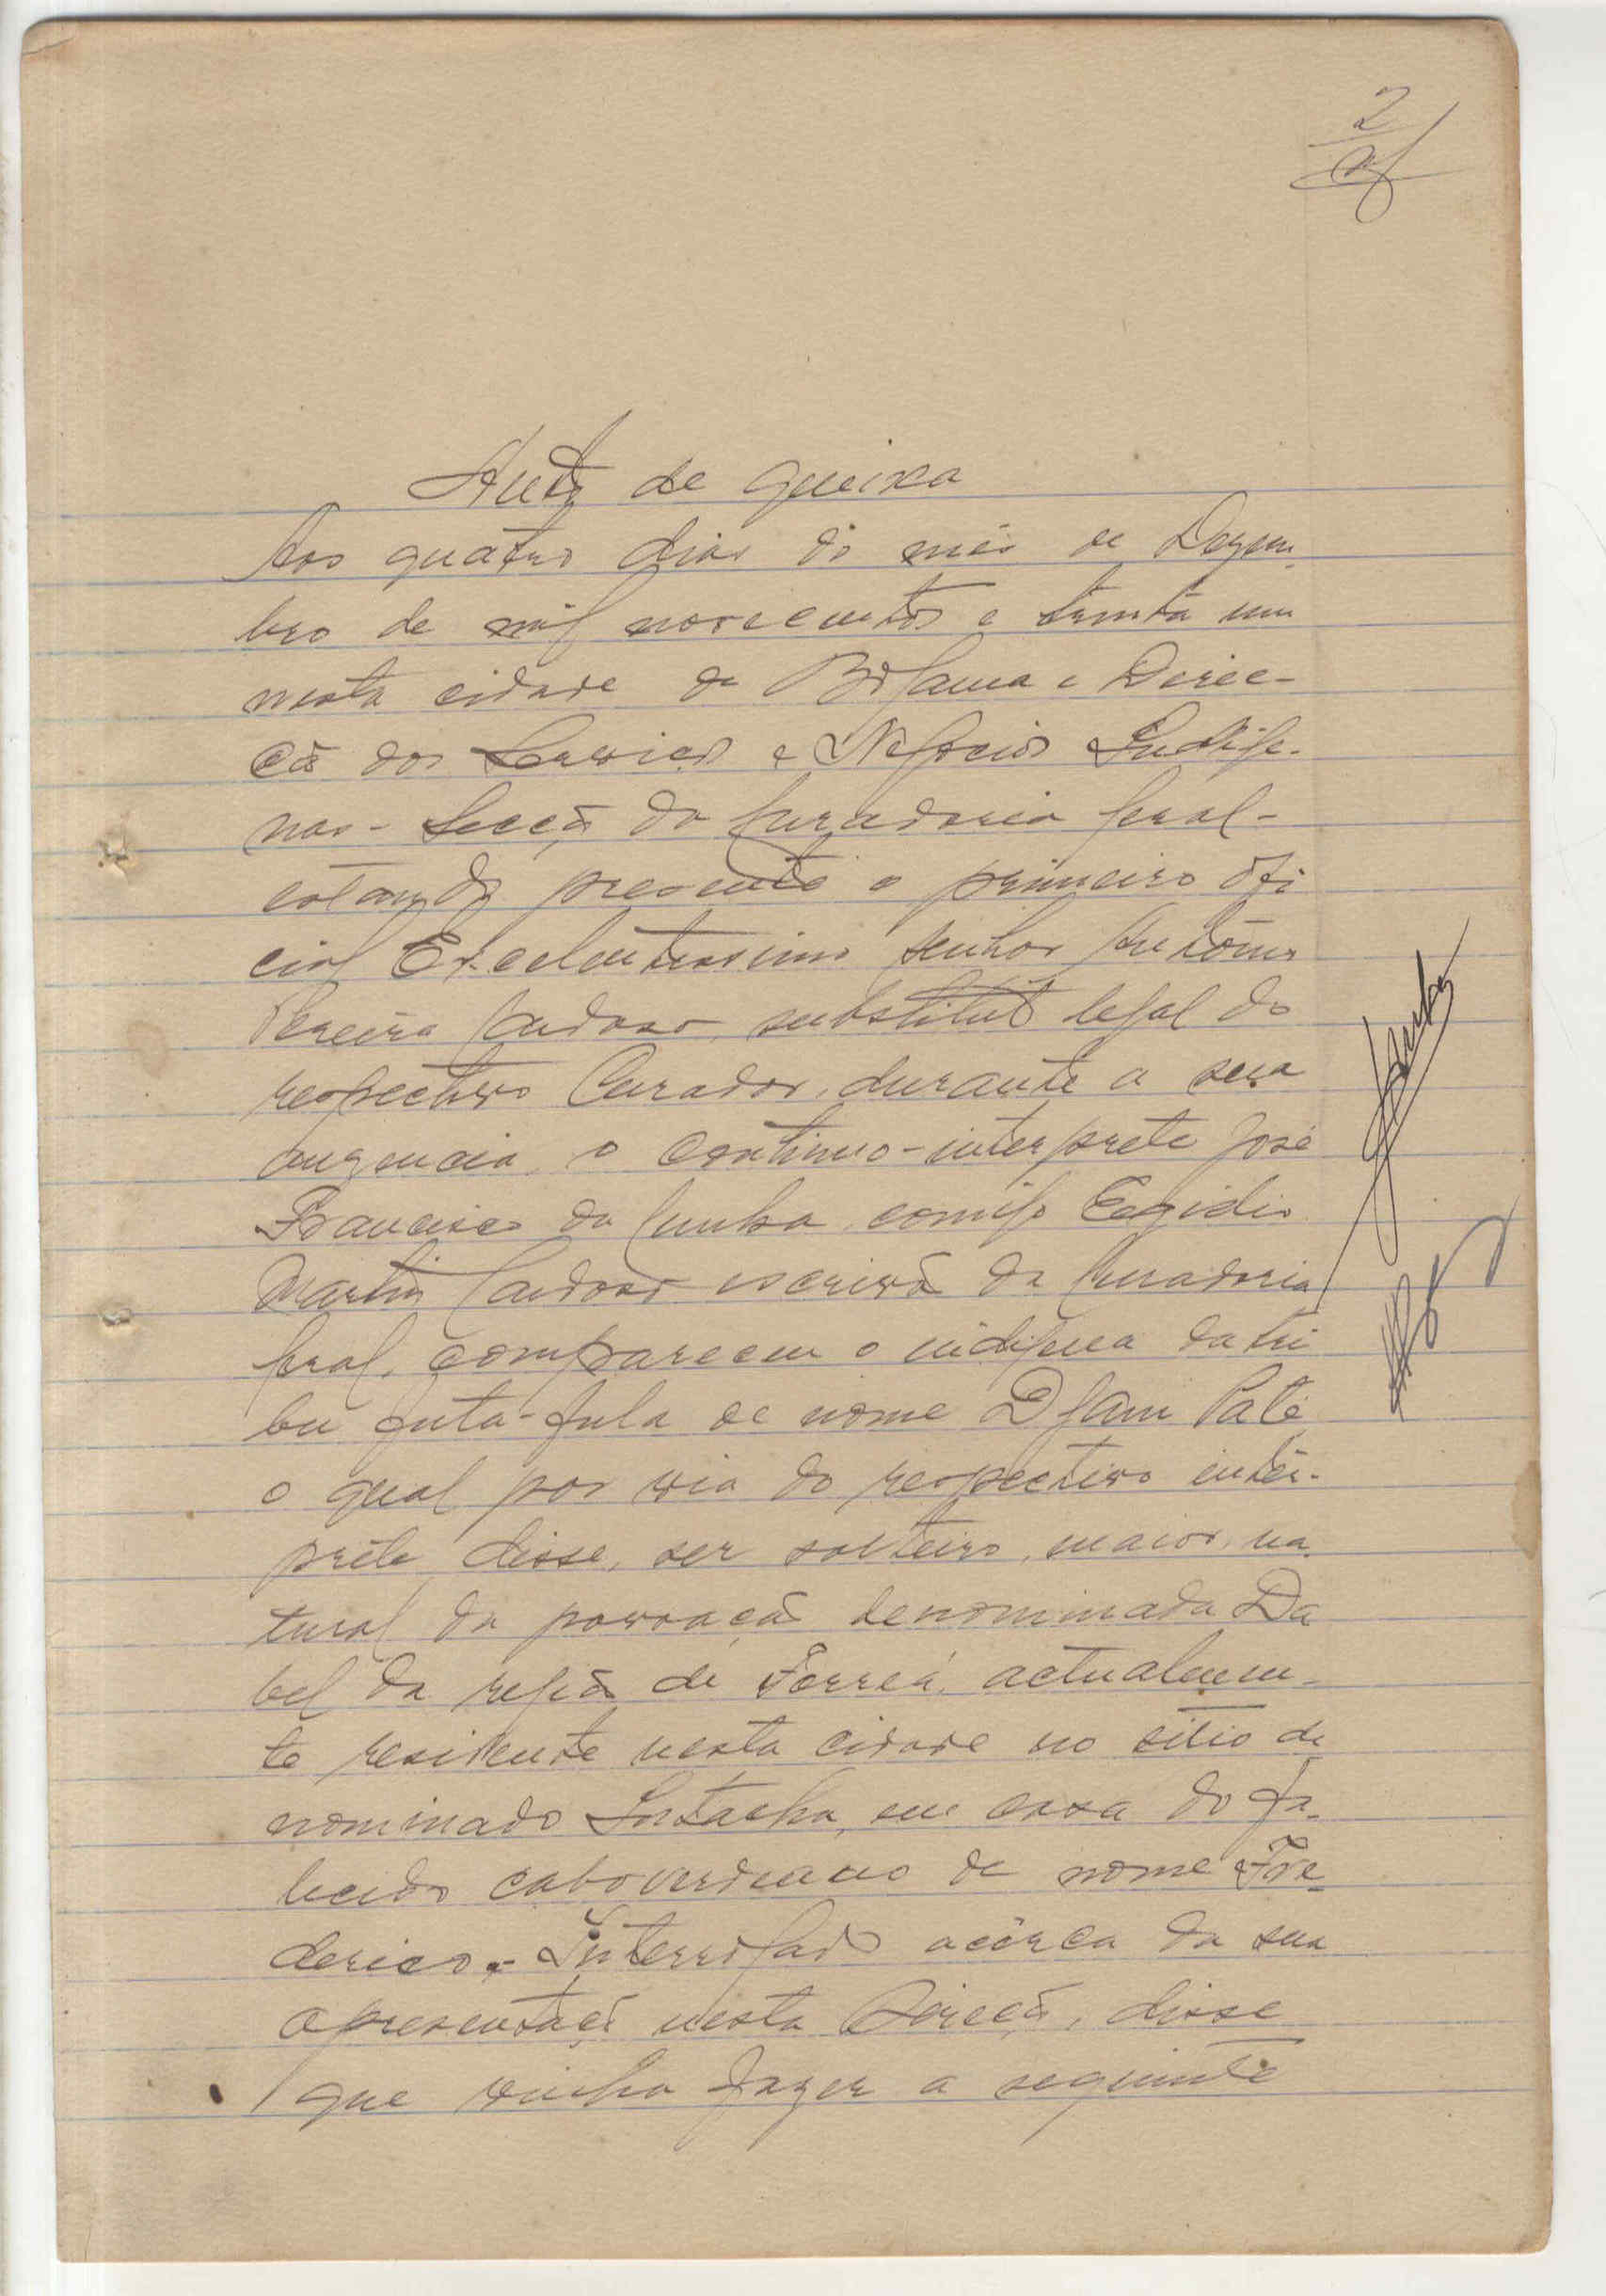 2
Auto de queixa
Aos quatro dias do mês de Dezem-
bro de mil novecentos e trinta um
nesta cidade de Bolama e Direc-
ção dos Serviços e Negocios Indige-
nas - Secção da Curadoria Geral -
estando presente o primeiro ofi
cial Excelentissimo senhor António
Pereira Cardoso, substituto legal do
respectivo Curador, durante a sua
auzencia, o continuo-interprete José
Francisco da Cunha, comigo Egidio
Martins Cardoso escrivão da Curadoria
Geral, compareceu o indigena da tri
bu futa-fula de nome Djam Paté
o qual por via do respectivo intér-
prete disse, ser solteiro, maior, na
tural da povoação denominada Da
bel da região de Forreá, actualmen-
te residente nesta cidade no sitio de
nominado Intacha, em casa do fa-
lecido caboverdeano de nome Fre-
derico.- Interrogado acêrca da sua
apresentação nesta Direcção, disse
que vinha fazer a seguinte